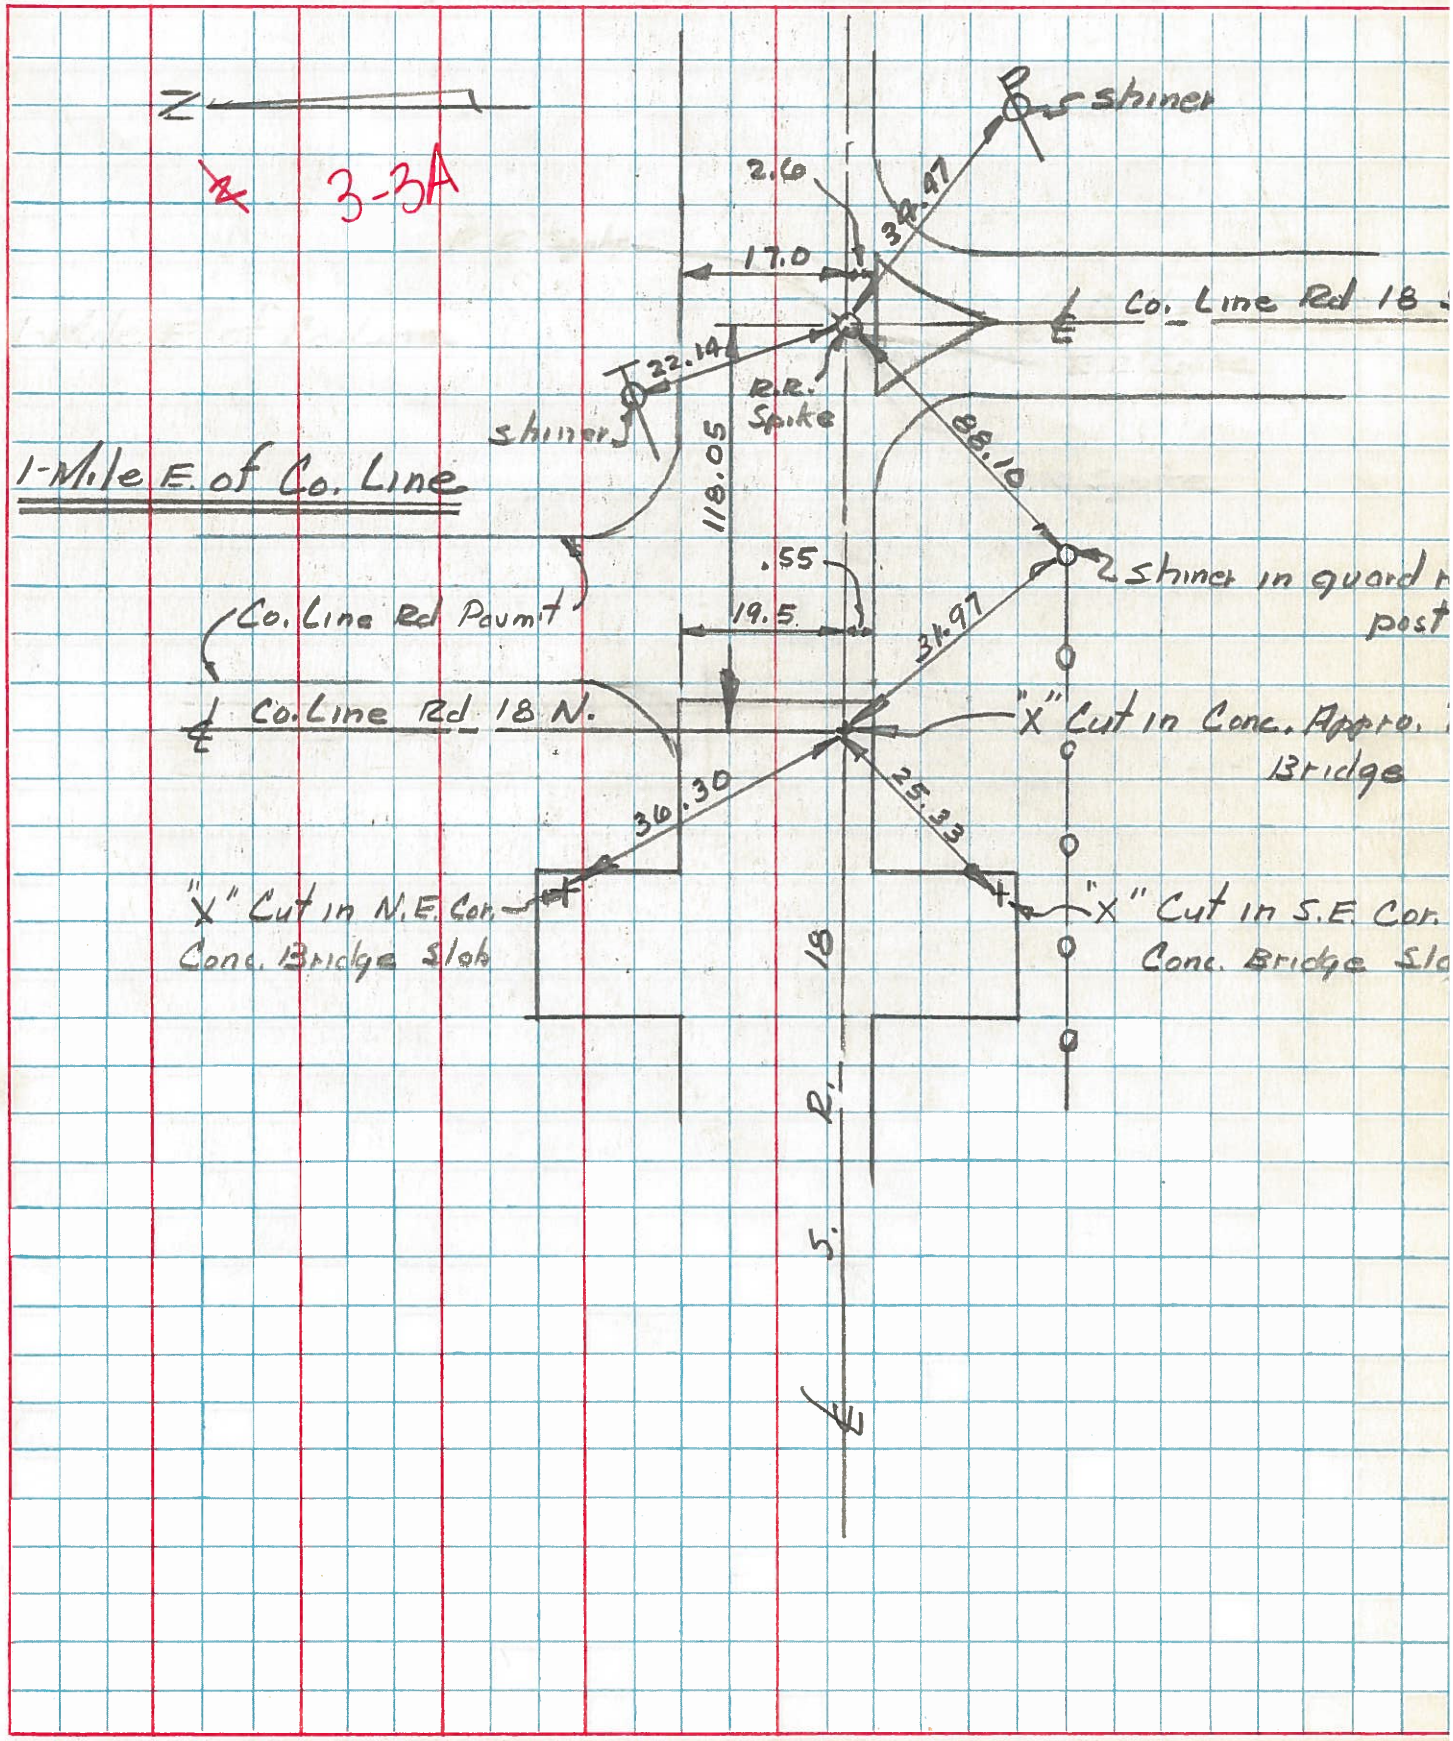 N
3-3A
shiner
2.6
34.47
17.0
℄ Co. Line Rd 18
22.14
R.R.
Spike
shiner
118.05
88.10
1-Mile E. of Co. Line
.55
shiner in guard
post
Co. Line Rd Pavmt
19.5
31.97
℄ Co. Line Rd 18 N.
"X" Cut in Conc. Appro.
Bridge
36.30
25.33
"X" Cut in N.E. Cor.
Conc. Bridge Slab
"X" Cut in S.E. Cor.
Conc. Bridge
℄ S. R. 18